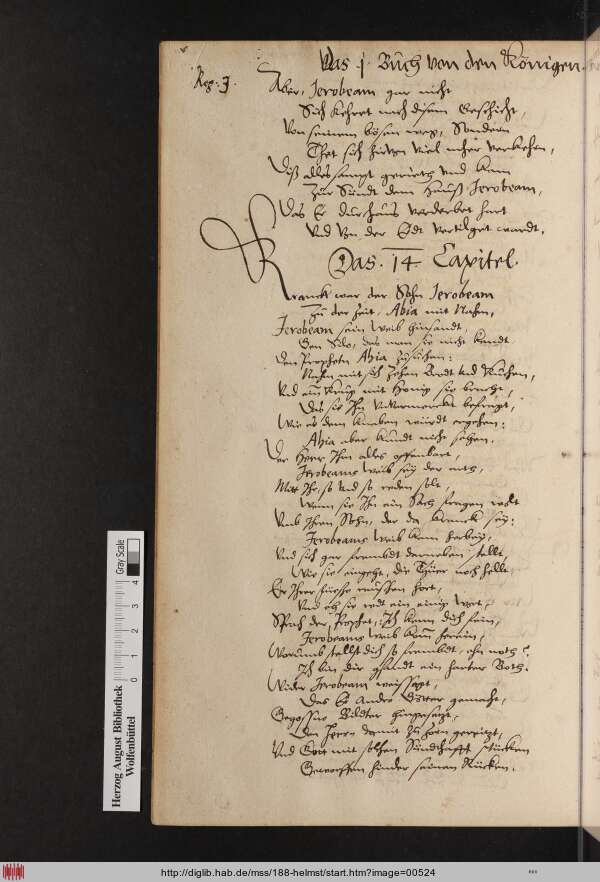 Das j. Buch von den Königen.
Reg: 3.
Aber, Jerobeam gar nicht
Sich kehret nach disem Geschicht,
Von seinem bösen weg, Sondern
Thet sich hirzu viel mher verkehen,
Diß alles sampt gerieth und kam
Zur Sündt dem Hauß Jerobeam,
Das Er durchaus verderbet hart
Und von der Erdt vertilget wardt.
Das. 14. Capitel.
Kranck war der Sohn Jerobeam
Zu der Zeit, Abia mit Nahm,
Jerobeam sein Weib hinsandt,
Gen Silo, das man sie nicht kandt
Den Propheten Ahia zusuchen:
Nahm mit sich Zehen Brodt und Kuchen,
Und ein Krug mit Honig sie bracht,
Das sie Ihn unvermerckt befragt,
Wie es dem knaben würdt ergehen:
Ahia aber kundt nicht sehen.
Der Herr Ihm alles offenbart,
Jerobeams Weib sey der arth,
Mitt Ihr, so und so reden solt,
Wenn sie Ihn ein Sach fragen wolt
Umb Ihren Sohn, der da kranck sey:
Jerobeams Weib kam herbey,
Und sich gar frembdt darneben stellt,
Wie sie eingeht, die Thüer noch hellt
Er Ihrer füesse rauschen hört,
Und eh sie redt ein einig Wort,
Sprach der Prophet: Ich kenn dich fein,
Jerobeams Weib kom herein,
Warumb stellst dich so frembdt, ohn noth?
Ich bin dir gsandt ein harter Both.
Wider Jerobeam weissagt,
Das Er Andre Götter gemacht,
Gegossne Bilder hingesetzt,
Den Herrn damit zu zorn gereitzt,
Und Gott mit solchen Sündhafft stücken
Geworffen hinder seinen Rücken.
Gray Scale
0 1 2 3 4
Herzog August Bibliothek
Wolfenbüttel
http://diglib.hab.de/mss/188-helmst/start.htm?image=00524